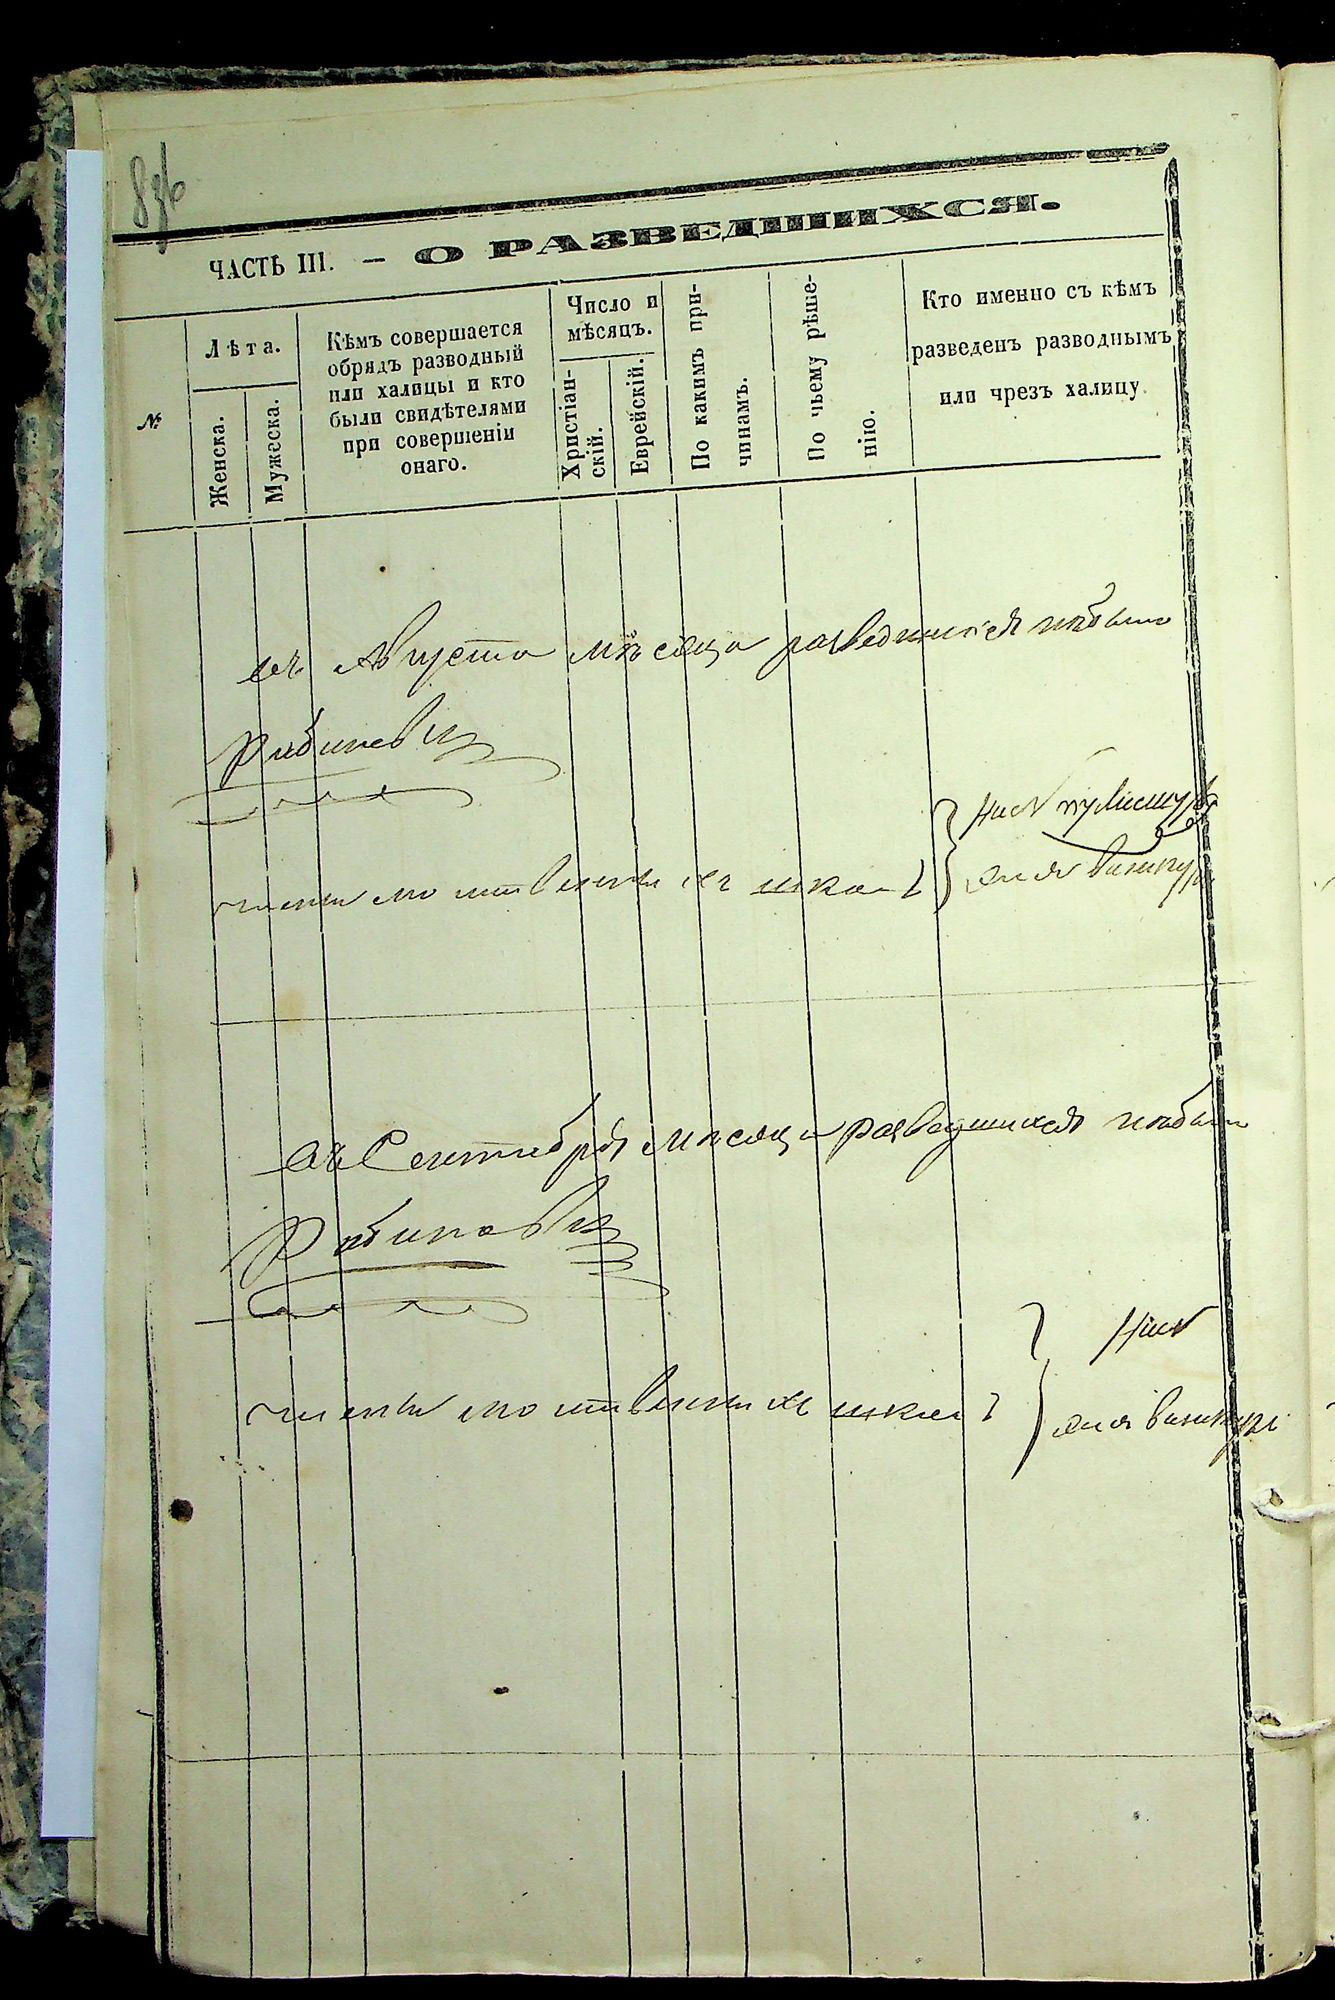 ЧАСТЬ III. — О РАЗВЕДШИХСЯ.
№
Лѣта.
Женска.
Мужеска.
Кѣмъ совершается
обрядъ разводный
или халицы и кто
были свидѣтелями
при совершеніи
онаго.
Число и
мѣсяцъ.
Христіан-
скій.
Еврейскій.
По какимъ при-
чинамъ.
По чьему рѣше-
нію.
Кто именно съ кѣмъ
разведенъ разводнымъ
или чрезъ халицу
въ Августа мѣсяца разведшихся небыло
Рабиновиц
члены молитвенных школъ
въ Сентября мѣсяца разведшихся небыло
Рабиновиц
члены молитвенных школъ